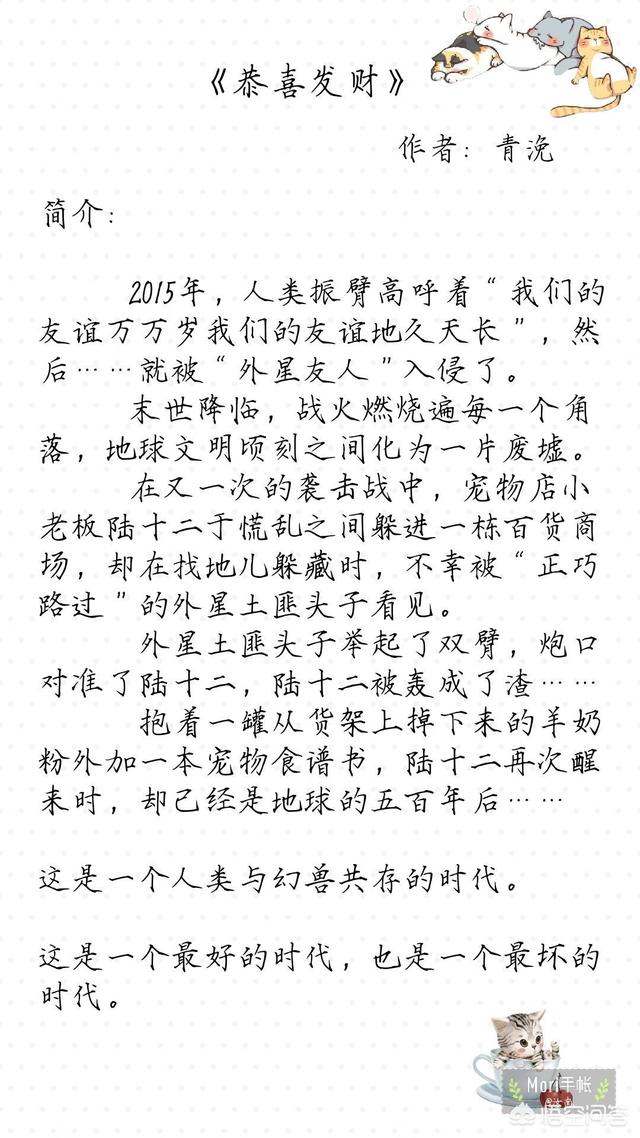 《恭喜发财》
作者：青浼
简介：
2015年，人类振臂高呼着“我们的
友谊万万岁我们的友谊地久天长”，然
后……就被“外星友人”入侵了。
末世降临，战火燃烧遍每一个角
落，地球文明顷刻之间化为一片废墟。
在又一次的袭击战中，宠物店小
老板陆十二于慌乱之间躲进一栋百货商
场，却在找地儿躲藏时，不幸被“正巧
路过”的外星土匪头子看见。
外星土匪头子举起了双臂，炮口
对准了陆十二，陆十二被轰成了渣……
抱着一罐从货架上掉下来的羊奶
粉外加一本宠物食谱书，陆十二再次醒
来时，却已经是地球的五百年后……
这是一个人类与幻兽共存的时代。
这是一个最好的时代，也是一个最坏的
时代。
Mori手帐
悟空问答